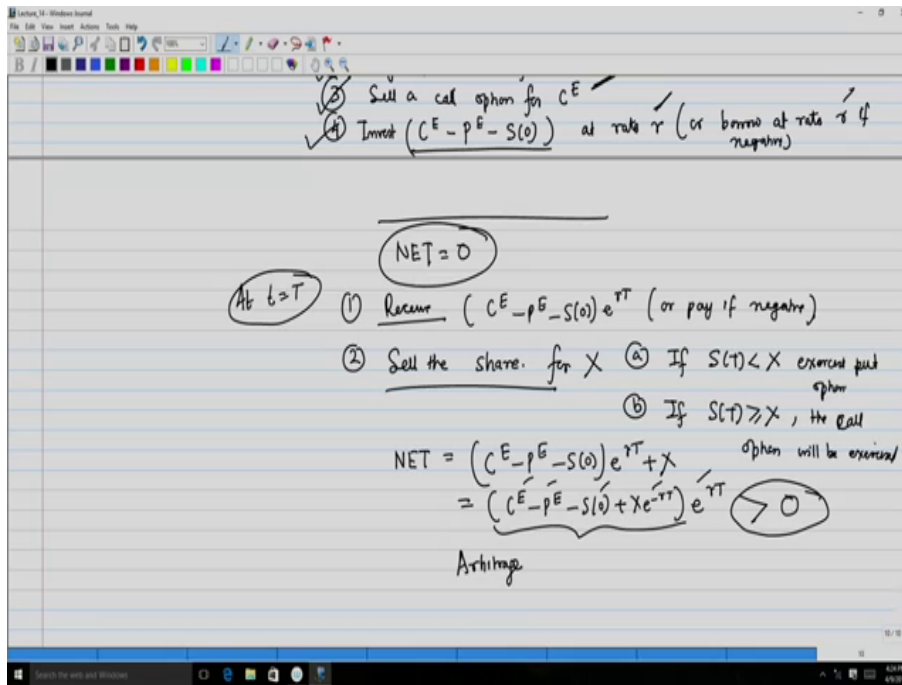 Lecture_14 - Windows Journal
File Edit View Insert Actions Tools Help
③ Sell a call option for C^E
④ Invest (C^E - P^E - S(0)) at rate r (or borrow at rate r if
negative)
NET = 0
At t=T ① Receive (C^E - P^E - S(0)) e^{rT} (or pay if negative)
② Sell the share. for X ⓐ If S(T) < X exercise put
option
ⓑ If S(T) ≥ X, the call
option will be exercised
NET = (C^E - P^E - S(0)) e^{rT} + X
= (C^E - P^E - S(0) + Xe^{-rT}) e^{rT} > 0
Arbitrage
10 / 10
10
Search the web and Windows